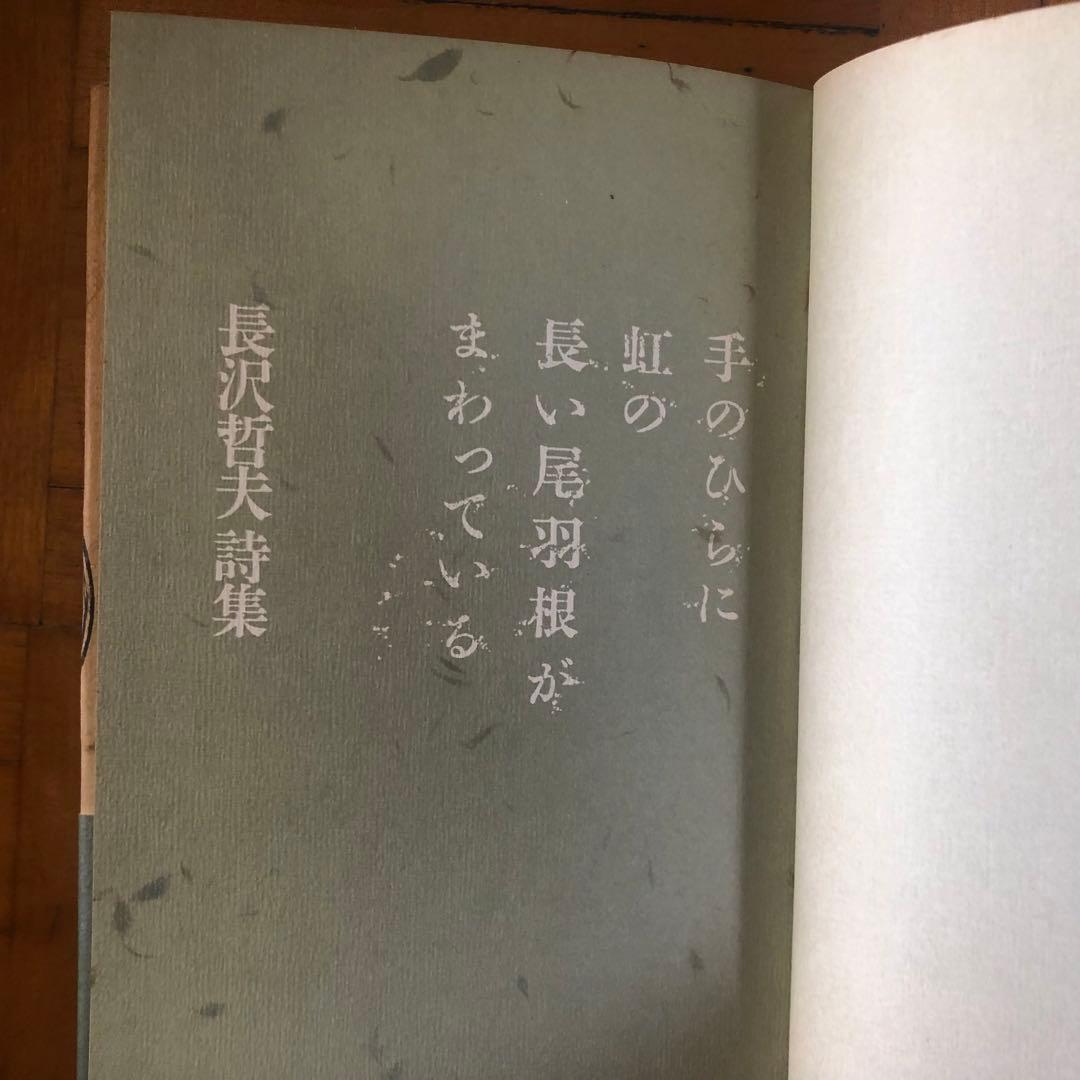 手のひらに
虹の
長い尾羽根が
まわっている
長沢哲夫詩集